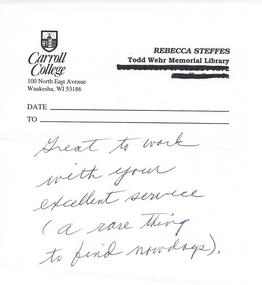 REBECCA STEFFES
Carroll
College
Todd Wehr Memorial Library
100 North East Avenue
Waukesha, WI 53186
DATE
TO
Great to work
with your
excellent service
(a rare thing
to find nowdays).